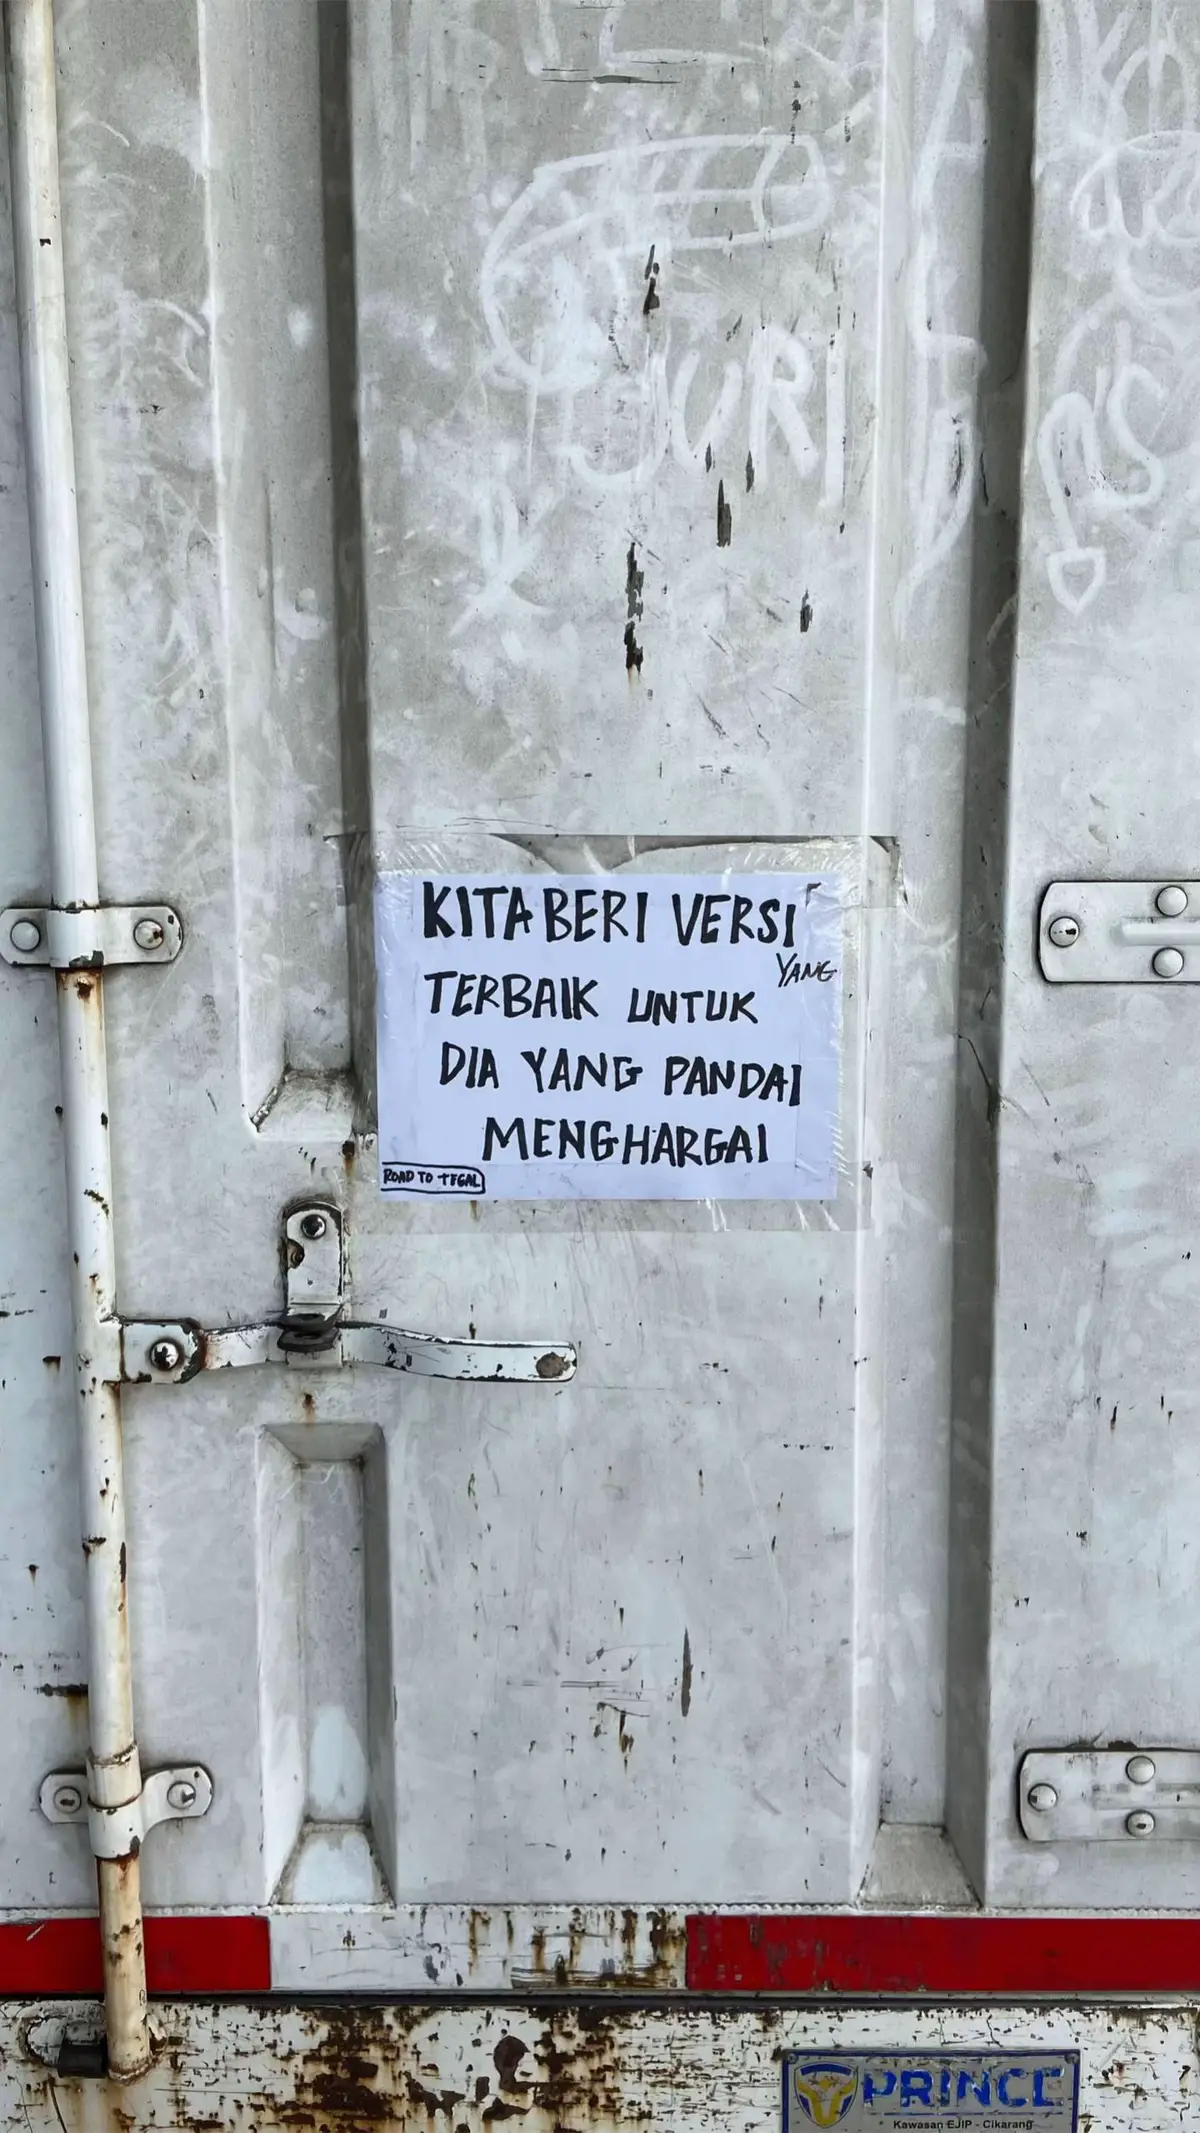 JURI
KITA BERI VERSI
YANG
TERBAIK UNTUK
DIA YANG PANDAI
MENGHARGAI
ROAD TO TEGAL
PRINCE
Kawasan EJIP - Cikarang